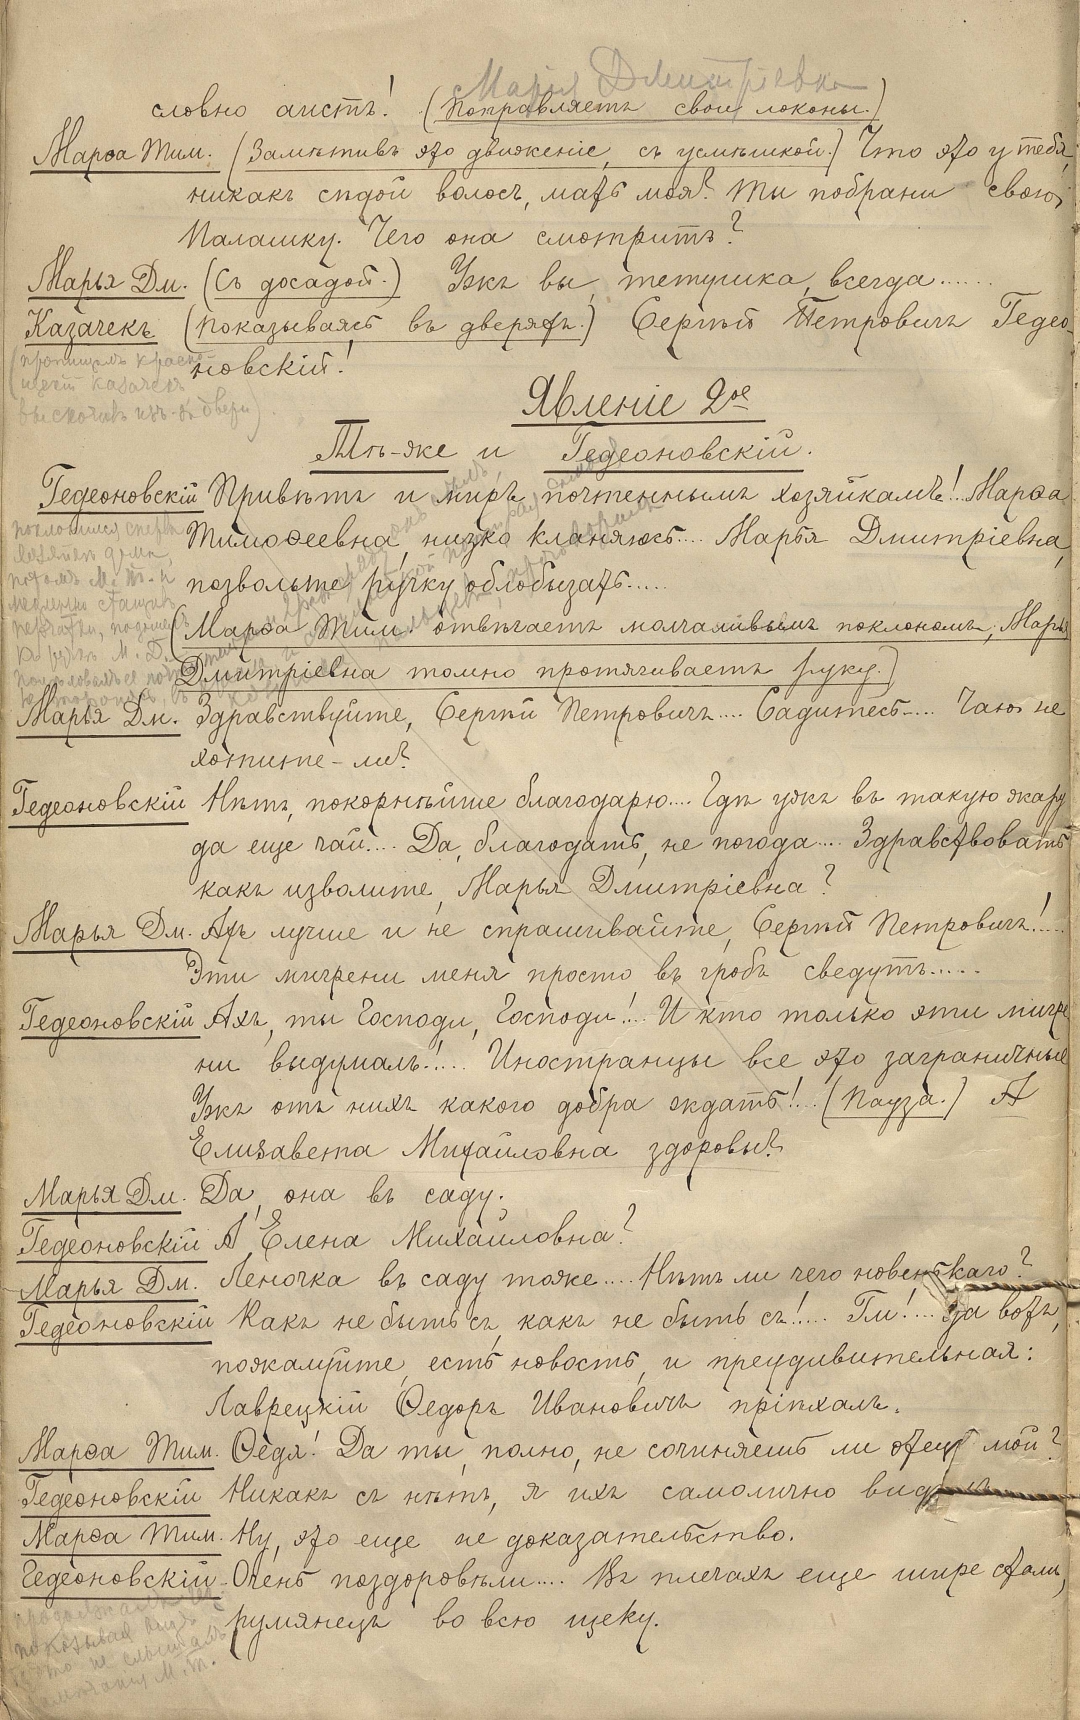 Марья Дмитріевна
словно аистъ! (Поправляетъ свои локоны.)
Марѳа Тим. (Замѣтивъ это движеніе, съ усмѣшкой.) Что это у тебя,
никакъ сѣдой волосъ, мать моя? Ты побрани свою
Палашку. Чего она смотритъ?
Марья Дм. (Съ досадой.) Ужъ вы, тетушка, всегда......
Казачекъ (показываясь въ дверяхъ.) Сергѣй Петровичъ Гедео-
новскій!
казачекъ
выскочивъ изъ-за двери).
Явленіе 2ое
Тѣ-же и Гедеоновскій.
Гедеоновскій Привѣтъ и миръ почтеннымъ хозяйкамъ!.. Марѳа
Тимоѳеевна, низко кланяюсь.... Марья Дмитріевна,
позвольте ручку облобызать.....
(Марѳа Тим. отвѣчаетъ молчаливымъ поклономъ, Марья
Дмитріевна томно протягиваетъ руку.)
Марья Дм. Здравствуйте, Сергѣй Петровичъ.... Садитесь.... Чаю не
хотите-ли?
Гедеоновскій Нѣтъ, покорнѣйше благодарю.... Гдѣ ужъ въ такую жару
да еще чай.... Да, благодать, не погода.... Здравствовать
какъ изволите, Марья Дмитріевна?
Марья Дм. Ахъ лучше и не спрашивайте, Сергѣй Петровичъ!....
Эти мигрени меня просто въ гробъ сведутъ.....
Гедеоновскій Ахъ, ты Господи, Господи!... И кто только эти мигре
ни выдумалъ!.... Иностранцы все это заграничные
Ужъ отъ нихъ какого добра ждать!.. (Пауза.) А
Елизавета Михайловна здоровы?
Марья Дм. Да, она въ саду.
Гедеоновскій А Елена Михайловна?
Марья Дм. Леночка въ саду тоже.... Нѣтъ ли чего новенькаго?
Гедеоновскій Какъ не быть съ, какъ не быть съ!.... Гм!.... Да вотъ,
пожалуйте, есть новость, и преудивительная:
Лаврецкій Ѳедоръ Ивановичъ пріѣхалъ.
Марѳа Тим. Ѳедя! Да ты, полно, не сочиняешь ли отецъ мой?
Гедеоновскій Никакъ съ нѣтъ, я ихъ самолично
Марѳа Тим. Ну, это еще не доказательство.
Гедеоновскій Очень поздоровѣли.... Въ плечахъ еще шире стали,
румянецъ во всю щеку.